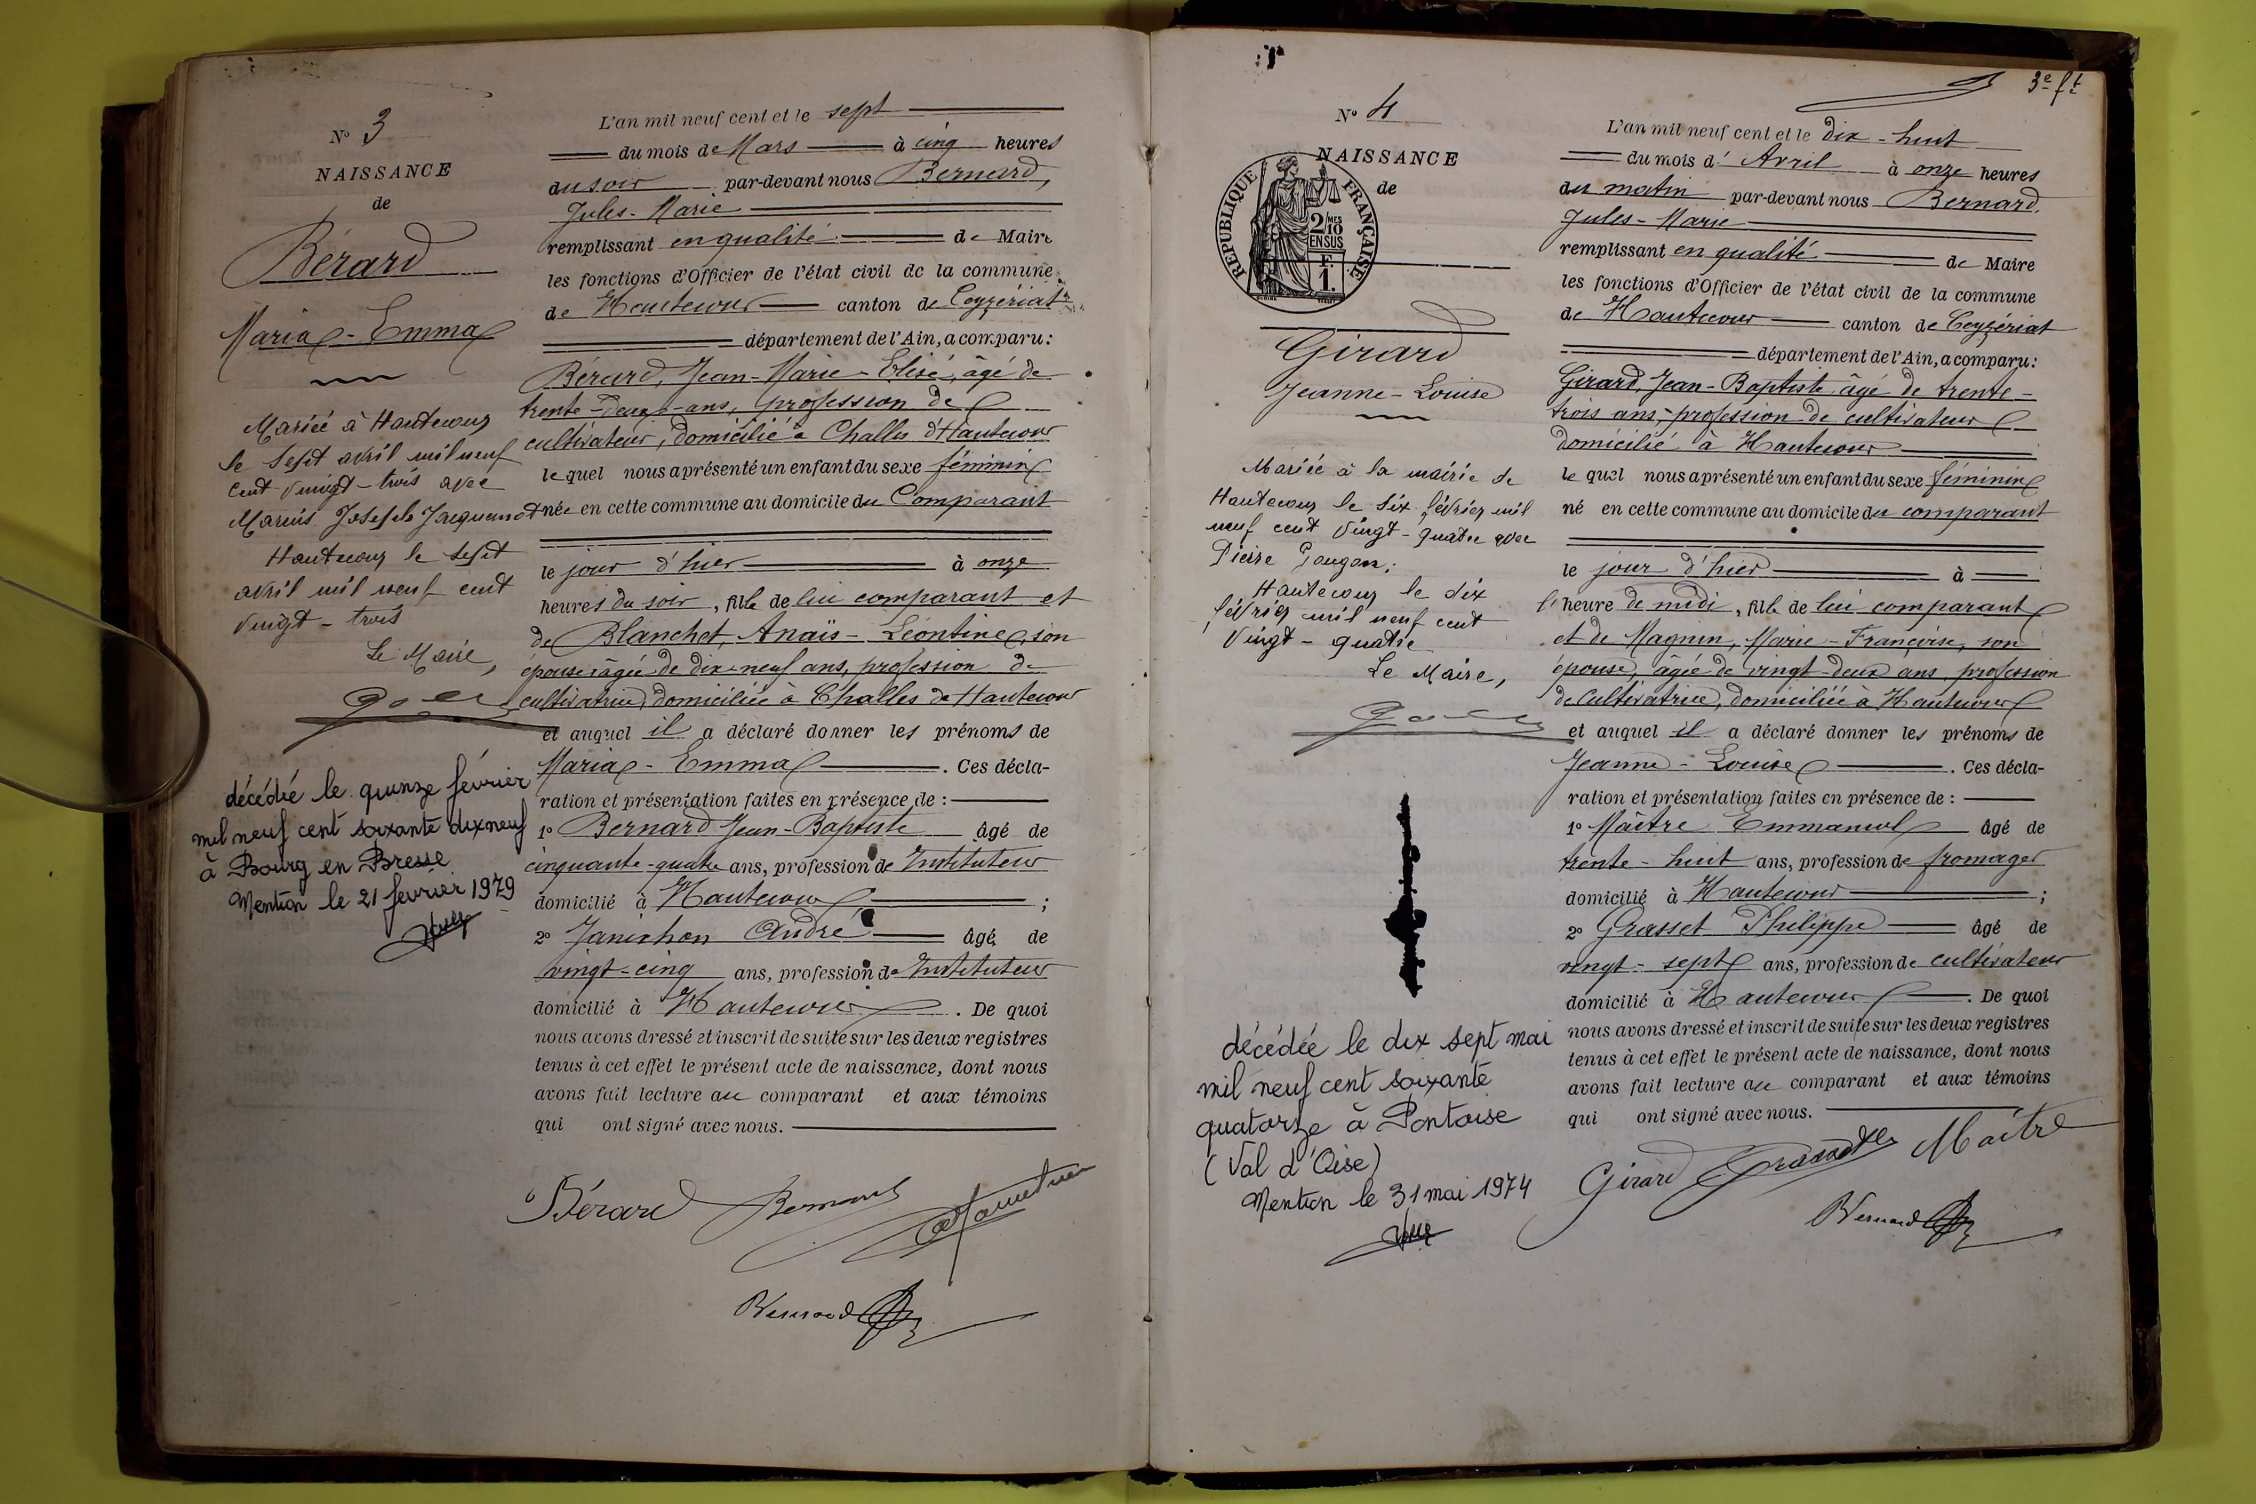 N° 3
NAISSANCE
de
Bérard
Maria - Emma
Mariée à Hautecour
le sept avril mil neuf
cent vingt - trois avec
Marius Joseph Jacquemot
Hautecour le sept
avril mil neuf cent
vingt - trois
Le Maire,
décédée le quinze février
mil neuf cent soixante dix neuf
à Bourg en Bresse
Mention le 21 février 1979
L'an mil neuf cent et le sept
du mois de Mars à cinq heures
du soir par-devant nous Bernard,
Jules - Marie
remplissant en qualité de Maire
les fonctions d'Officier de l'état civil de la commune
de Hautecour canton de Ceyzériat
département de l'Ain, a comparu:
Bérard, Jean - Marie - Elisé, âgé de
trente - deux - ans, profession de
cultivateur, domicilié à Challes d'Hautecour
lequel nous a présenté un enfant du sexe féminin
née en cette commune au domicile du Comparant
le jour d'hier à onze
heures du soir, fille de lui comparant et
de Blanchet, Anaïs - Léontine, son
épouse âgée de dix-neuf ans, profession de
cultivatrice, domiciliée à Challes de Hautecour
et auquel il a déclaré donner les prénoms de
Maria - Emma . Ces décla-
ration et présentation faites en présence de :
1° Bernard Jean - Baptiste âgé de
cinquante - quatre ans, profession de Instituteur
domicilié à Hautecour ;
2° Janichon André âgé de
vingt - cinq ans, profession de Instituteur
domicilié à Hautecour . De quoi
nous avons dressé et inscrit de suite sur les deux registres
tenus à cet effet le présent acte de naissance, dont nous
avons fait lecture au comparant et aux témoins
qui ont signé avec nous.
Bérard Bernard
Bernard
3e ft
N° 4
NAISSANCE
de
RÉPUBLIQUE FRANÇAISE
2/10 MES
EN SUS
F.
1.
Girard
Jeanne - Louise
Mariée à la mairie de
Hautecour le six février mil
neuf cent vingt - quatre avec
Pierre Gougon;
Hautecour le dix
février mil neuf cent
vingt - quatre
Le Maire,
décédée le dix sept mai
mil neuf cent soixante
quatorze à Pontoise
(Val d'Oise)
Mention le 31 mai 1974
L'an mil neuf cent et le dix - huit
du mois d' Avril à onze heures
du matin par-devant nous Bernard,
Jules - Marie
remplissant en qualité de Maire
les fonctions d'Officier de l'état civil de la commune
de Hautecour canton de Ceyzériat
département de l'Ain, a comparu:
Girard, Jean - Baptiste, âgé de trente -
trois ans, profession de cultivateur
domicilié à Hautecour
lequel nous a présenté un enfant du sexe féminin
né en cette commune au domicile du comparant
le jour d'hier à
l'heure de midi, fille de lui comparant
et de Magnin, Marie - Françoise, son
épouse, âgée de vingt - deux ans, profession
de Cultivatrice, domiciliée à Hautecour
et auquel il a déclaré donner les prénoms de
Jeanne - Louise . Ces décla-
ration et présentation faites en présence de :
1° Maître Emmanuel âgé de
trente - huit ans, profession de fromager
domicilié à Hautecour ;
2° Grasset Philippe âgé de
vingt - sept ans, profession de cultivateur
domicilié à Hautecour . De quoi
nous avons dressé et inscrit de suite sur les deux registres
tenus à cet effet le présent acte de naissance, dont nous
avons fait lecture au comparant et aux témoins
qui ont signé avec nous.
Girard Grasset Maître
Bernard